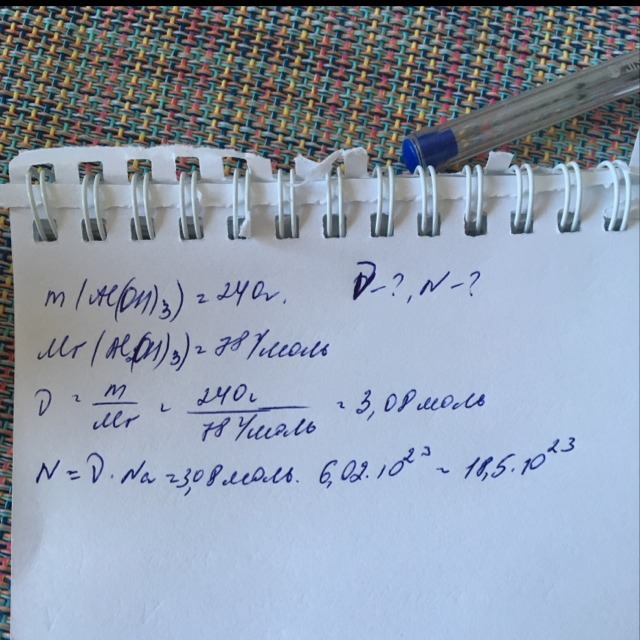 m(Al(OH)3) = 240г. D-?, N-?
Mr(Al(OH)3) = 78 г/моль
D = m/Mr = 240г/78 г/моль = 3,08 моль
N = D · Na = 3,08 моль · 6,02·10^23 = 18,5·10^23